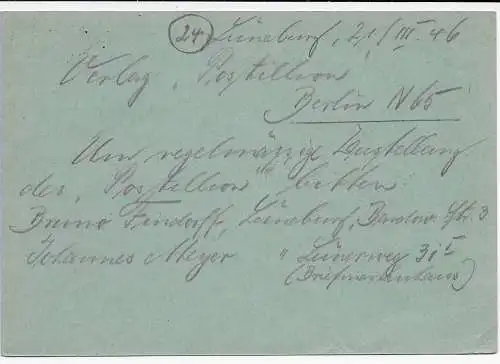 (24) Lüneburg, 21/III.46
Verlag „Postillion"
Berlin N 65
Um regelmäszige Zustellung
des „Postillion" bitten:
Bruno Fendorff, Lüneburg, Str. 3
Johannes Meyer " Lünerweg 3i I
(Briefmarkenhaus)